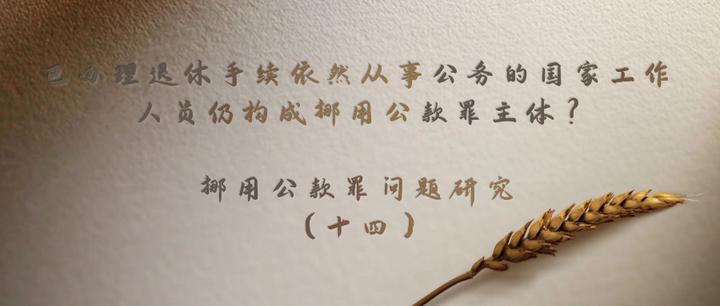 已办理退休手续依然从事公务的国家工作
人员仍构成挪用公款罪主体？
挪用公款罪问题研究
（十四）